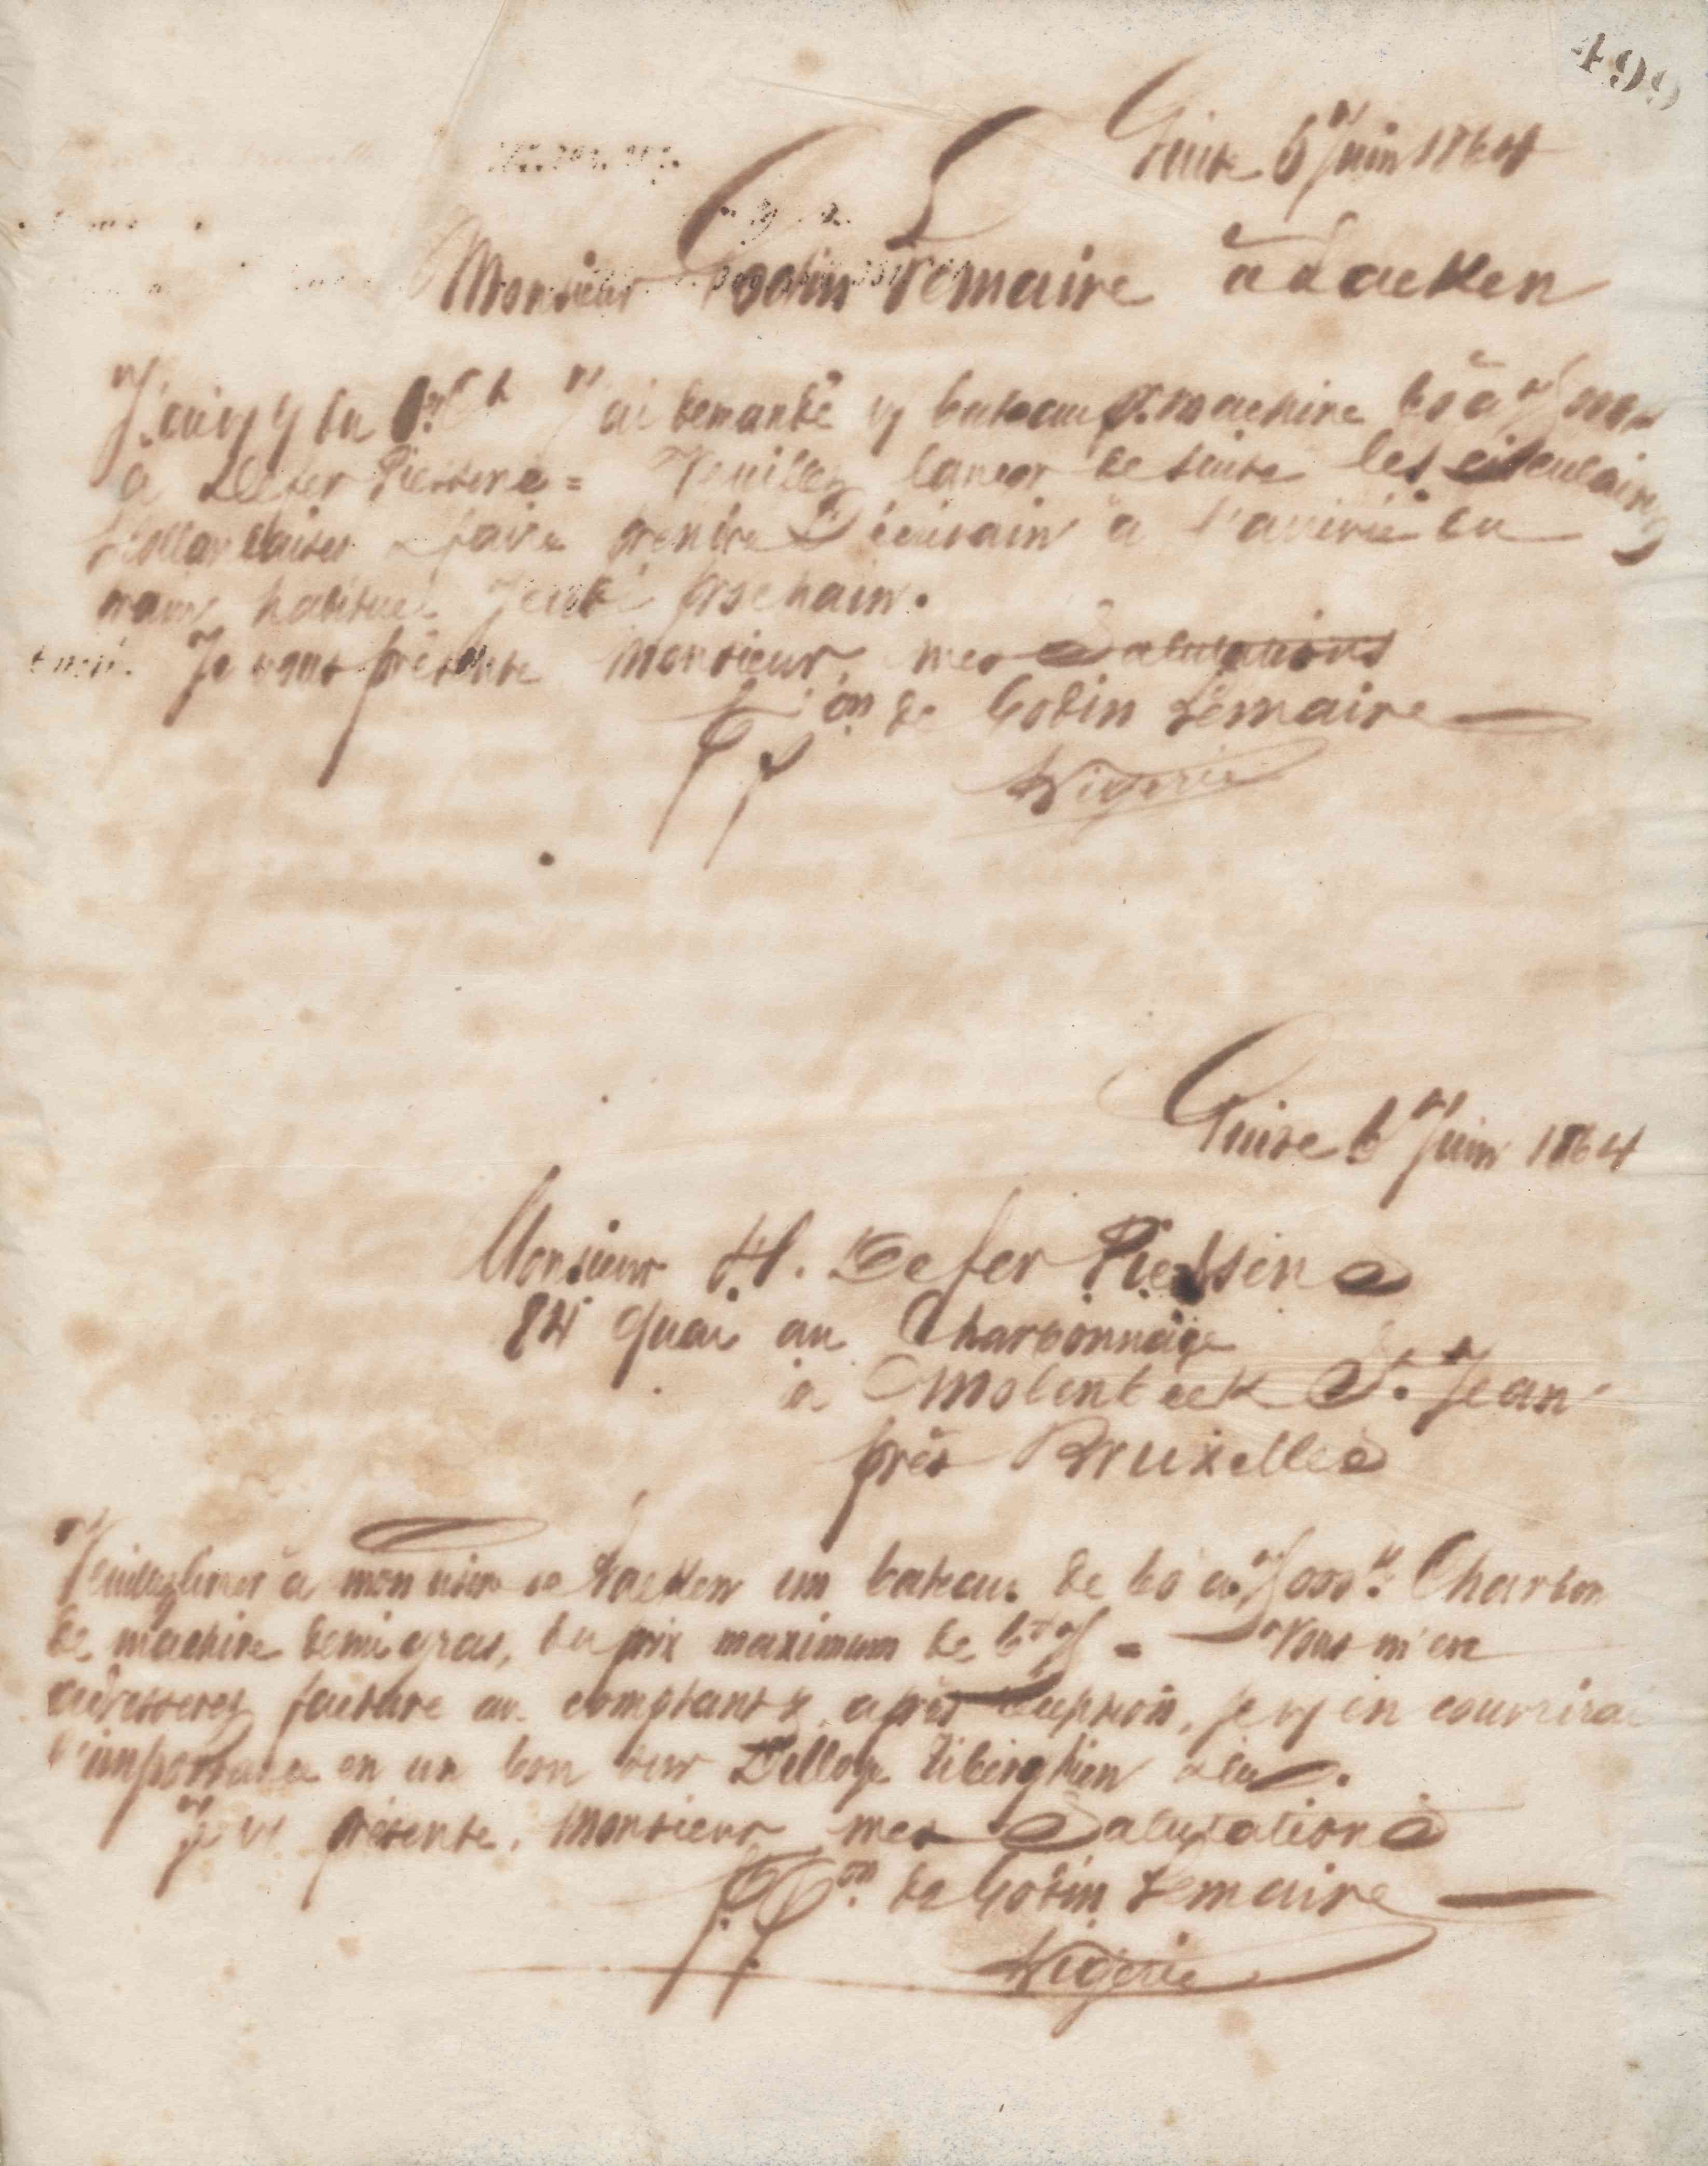 499
Guise 6 Juin 1864
Monsieur Godin Lemaire à Laeken
J'ai vs du J'ai demandé un bateau machine 60 à 75000 k
à Defer Piessens = Veuillez lancer de suite les circulaires
hollandaises & faire prendre Décurain à l'arrivée du
train habituel Jeudi prochain.
Je vous présente Monsieur, mes Salutations
pp on de Godin Lemaire
Guise 6 Juin 1864
Monsieur H. Defer Piessens
84 quai au Charbonnage
à Molenbeek St. Jean
près Bruxelles
Veuillez livrer à mon usine de Laeken un bateau de 60 à 75000 k Charbon
de machine demi gras, du prix maximum de Vous m'en
adresserez facture au comptant & après réception, je vs en couvrirai
l'importance en un bon sur Delloye Tiberghien & Cie.
Je vs présente, Monsieur, mes Salutations
pp on de Godin Lemaire